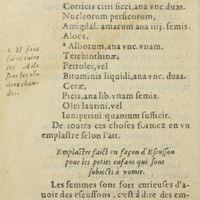 Corticis citri sicci, ana vnc. duas.
Nucleorum persicorum,
Amigdal. amarum ana iiij. semis.
Aloes,
a Alliorum, ana vnc. vnam.
Terebinthinæ,
Petrolei, vel
Bituminis liquidi, ana vnc. duas.
Ceræ,
Picis, ana lib. vnam semis.
Olei laurini, vel
Iuniperini quantum sufficit.
De toutes ces choses formez en vn
emplastre selon l'art.
a Il faut
faire cuire
les
Emplastre faict en façon d'Escusson
pour les petits enfans qui sont
subiects à vomir.
Les femmes sont fort curieuses d'a-
uoir des escussons, c'est à dire des em-